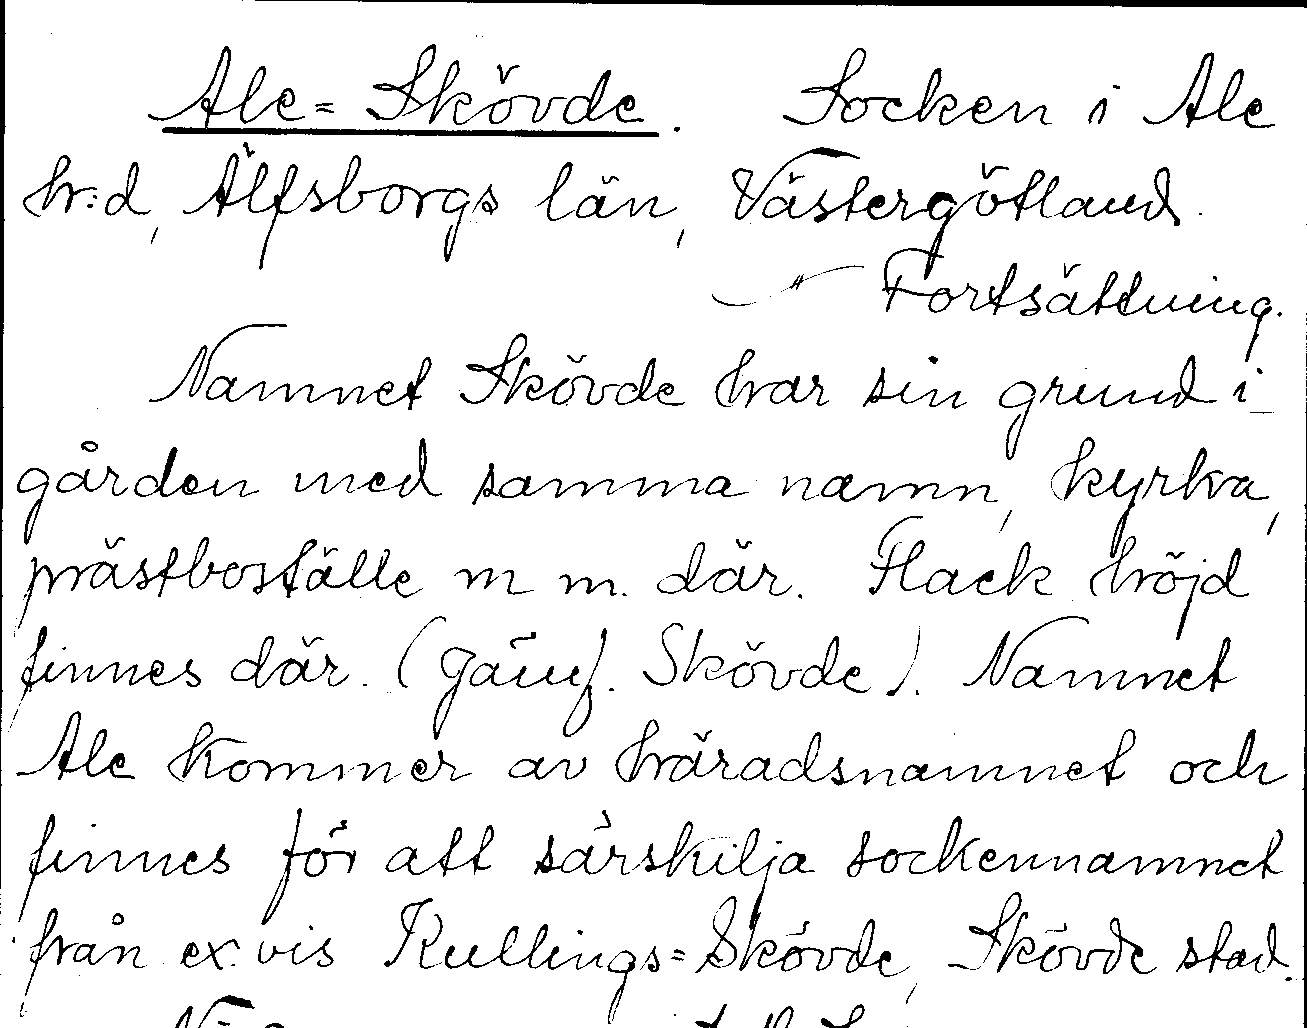 Ale=Skövde. Socken i Ale
hr:d, Älfsborgs län, Västergötland.
Fortsättning.
Namnet Skövde har sin grund i
gården med samma namn, kyrka,
prästboställe m m. där. Flack höjd
finnes där. (Jämf. Skövde). Namnet
Ale kommer av häradsnamnet och
finnes för att särskilja sockennamnet
från ex. vis Kullings=Skövde, Skövde stad.